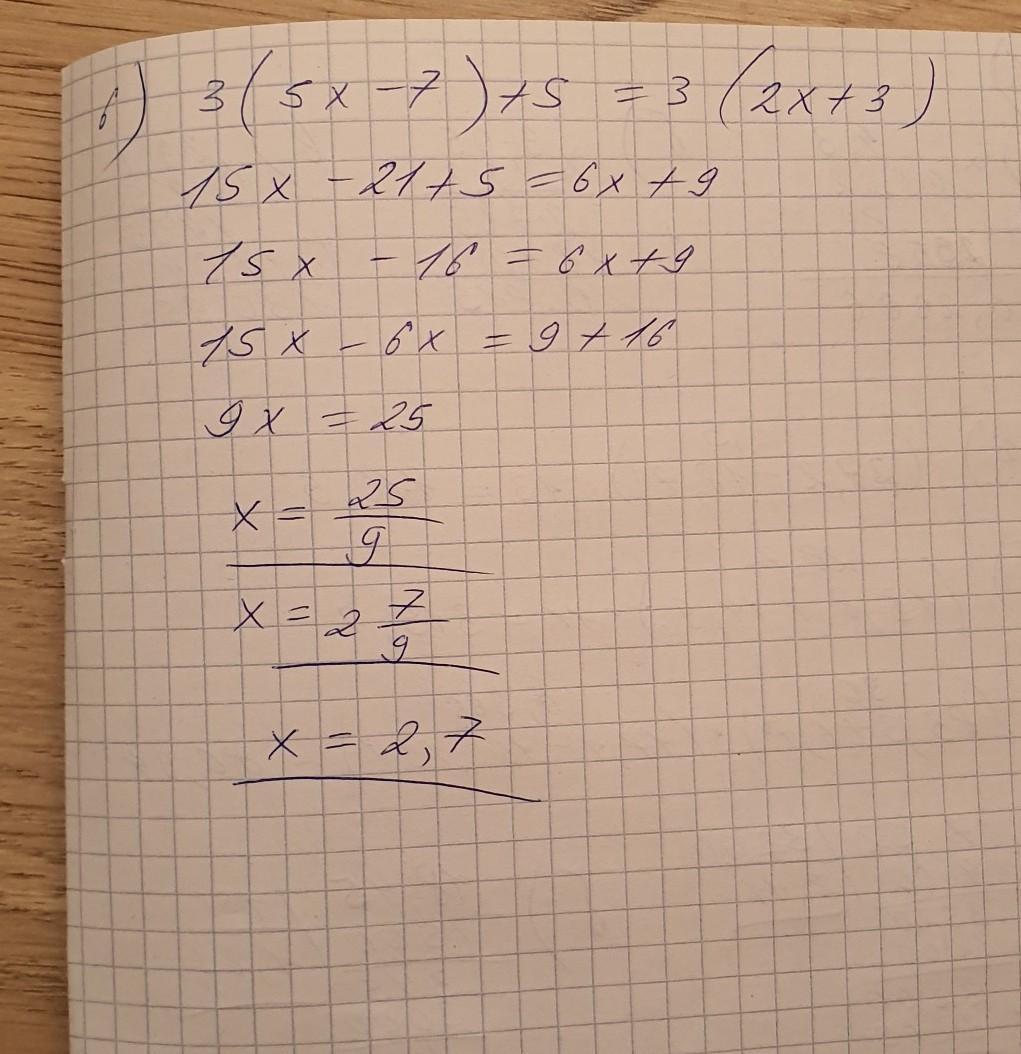 б) 3(5x-7)+5 = 3(2x+3)
15x -21+5 = 6x+9
15x - 16 = 6x+9
15x - 6x = 9+16
9x = 25
x = 25/9
x = 2 7/9
x = 2,7